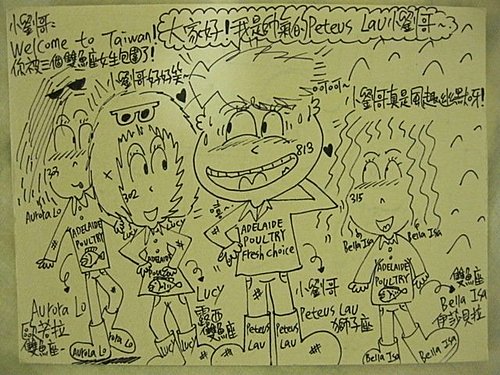 小劉哥~
Welcome to Taiwan!
你被三個雙魚座女生包圍了!
大家好!我是帥氣的Peteus Lau小劉哥~
小劉哥好好笑~
呵呵~
小劉哥真是風趣幽默呀!
32
302
813
315
Aurora Lo
Lucy
Lucy
Bella Isa
Bella Isa
ADELAIDE
POULTRY
ADELAIDE
Poultry
ADELAIDE
POULTRY
Fresh Choice
ADELAIDE
POULTRY
Aurora Lo
雙魚座~
Lucy
露西
雙魚座
小劉哥
Peteus Lau
獅子座
雙魚座
Bella Isa
伊莎貝拉
Aurora Lo
Lucy
Lucy
Peteus
Lau
Peteus
Lau
Bella Isa
Bella Isa